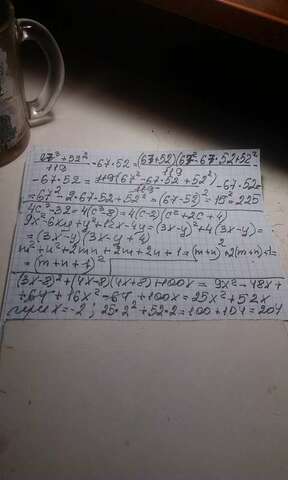 67³+52²/119 - 67·52 = (67+52)(67²-67·52+52²)/119
-67·52 = 119(67²-67·52+52²)/119 - 67·52=
=67²-2·67·52+52²=(67-52)²=15²=225
4c³-32=4(c³-8)=4(c-2)(c²+2c+4)
9x²-6xy+y²+12x-4y=(3x-y)²+4(3x-y)=
=(3x-y)(3x-y+4)
m²+n²+2mn+2m+2n+1=(m+n)²+2(m+n)+1=
=(m+n+1)²
(3x-8)²+(4x-8)(4x+8)+100x=9x²-48x+
+64+16x²-64+100x=25x²+52x
x=-2; 25·2²+52·2=100+104=204